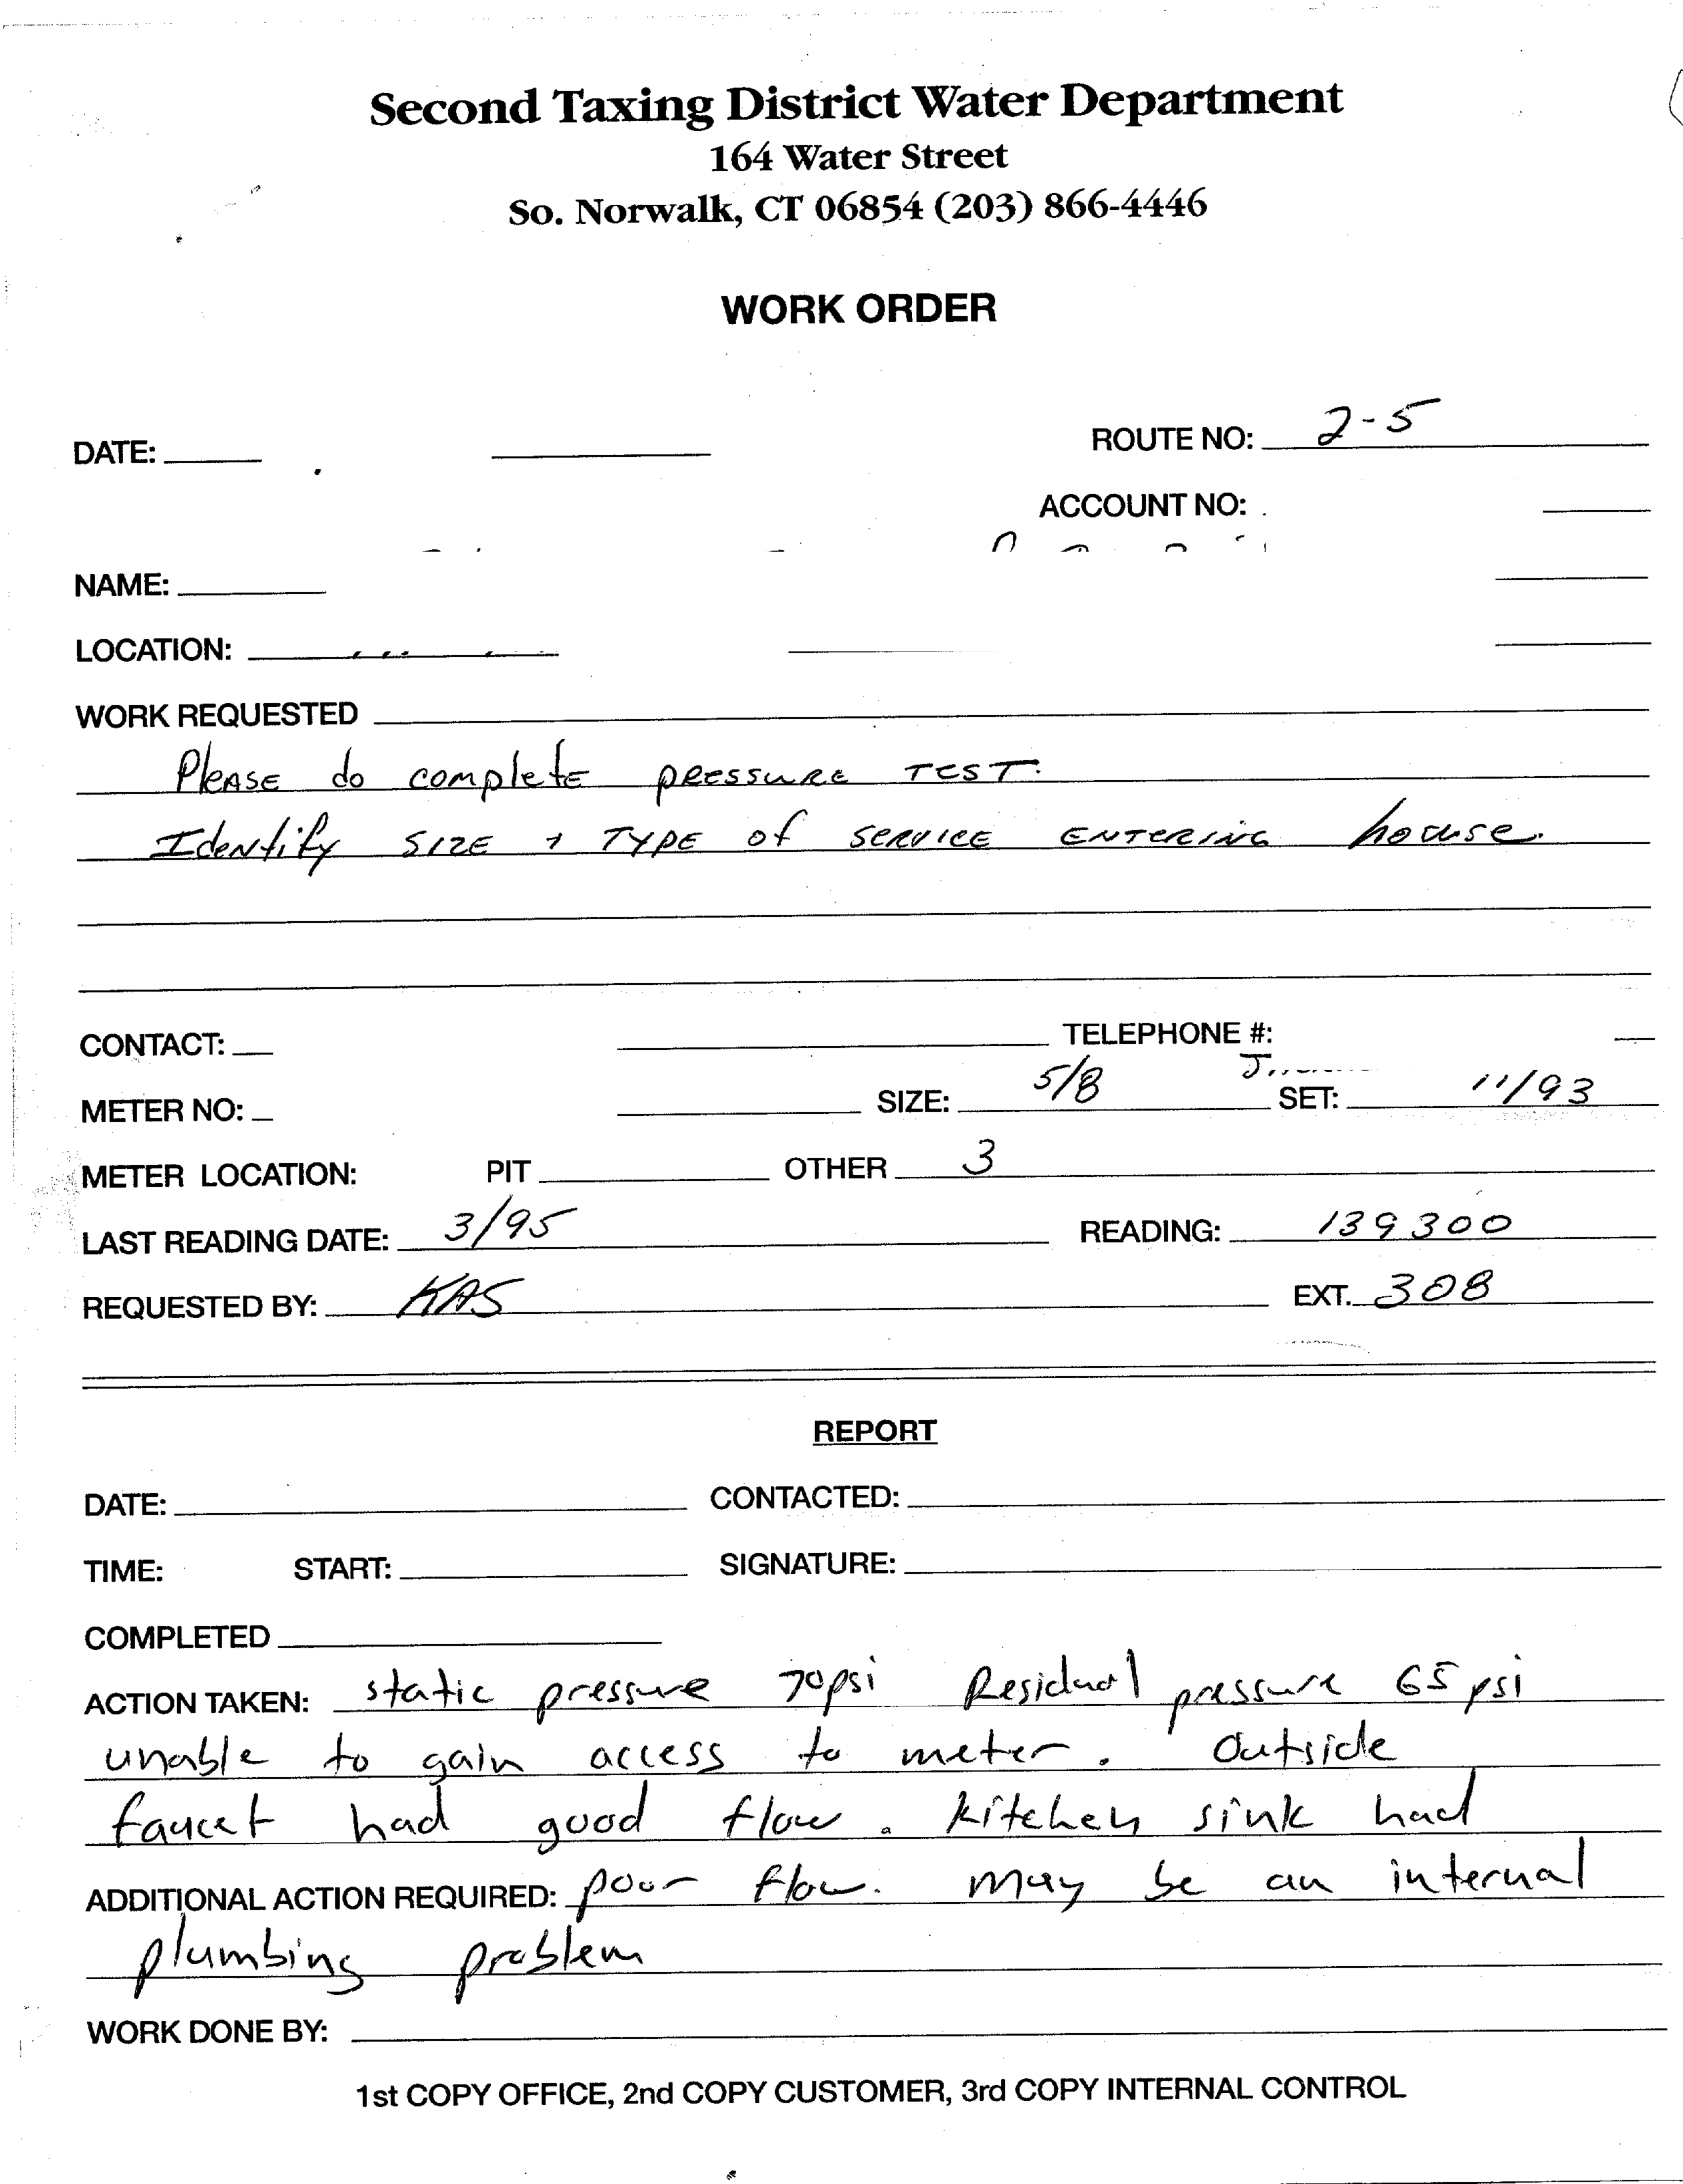 Second Taxing District Water Department
164 Water Street
So. Norwalk, CT 06854 (203) 866-4446
WORK ORDER
DATE: ROUTE NO: 2-5
ACCOUNT NO:
NAME:
LOCATION:
WORK REQUESTED
PleASE do complete pRessuRe TesT.
Identify SIZE + TYPE of SeRVICE ENTERING house.
CONTACT: TELEPHONE #:
METER NO: SIZE: 5/8 SET: 11/93
METER LOCATION: PIT OTHER 3
LAST READING DATE: 3/95 READING: 139300
REQUESTED BY: KAS EXT. 308
REPORT
DATE: CONTACTED:
TIME: START: SIGNATURE:
COMPLETED
ACTION TAKEN: static pressure 70psi Residual pressure 65 psi
unable to gain access to meter. Outside
faucet had good flow. kitchen sink had
ADDITIONAL ACTION REQUIRED: poor flow. may be an internal
plumbing problem
WORK DONE BY:
1st COPY OFFICE, 2nd COPY CUSTOMER, 3rd COPY INTERNAL CONTROL